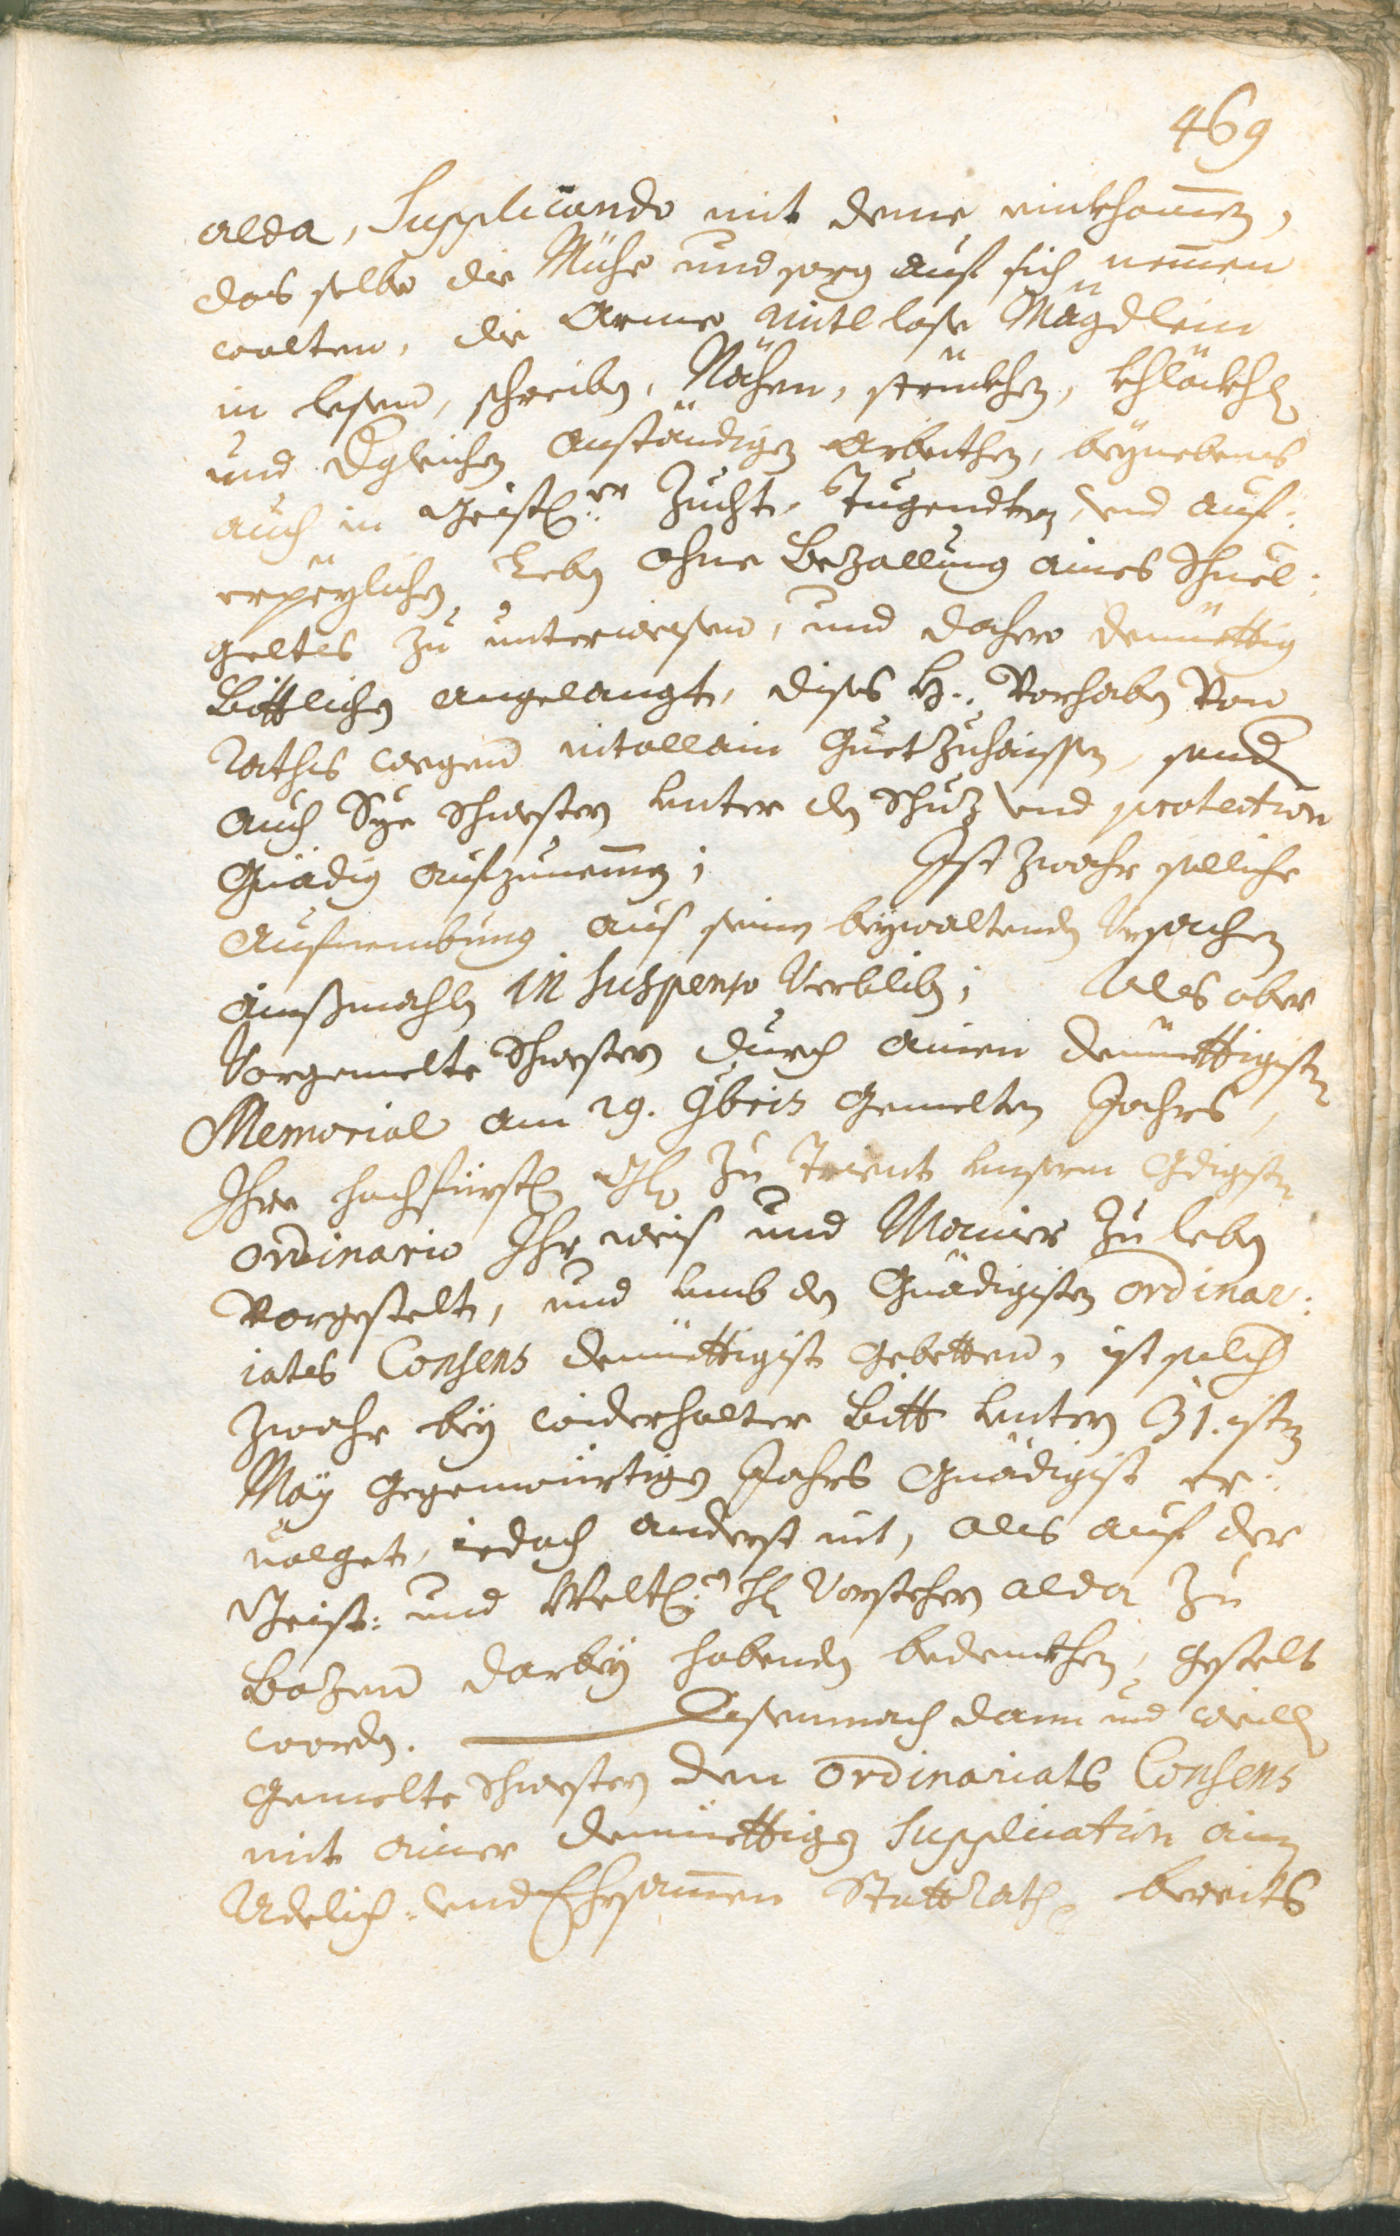 469
alda, Supplicando mit deme einkhom̄en,
das selbe die Mühe und sorg auf sich nem̄en
wolten, die Arme mitllose Mägdlein
in lesen, schreiben, Nähen, strickhen, khläckhlen
und dgleichen anständigen Arbeithen, beynebens
auch in Geistl:er Zucht, Tugendten, und auf:
erpeylichen Leben ohne Bezallung aines Schuel:
geltes zu unterweisen, und dahero demüettig
Bittlichen angelangt, dises H: Vorhaben Von
Raths wegen nitallain Guetzuhaissen, sondern
auch Sye Schwestern unter den Schuz und protection
Gnädig aufzunem̄en; Ist zwahr solliche
Aufnembung aus seinen beywaltenden Ursachen
ainßmahls in Suspenso Verbliben; Als aber
Vorgemelte Schwestern durch ainen demüettigisten
Memorial am 29. 9bris gemelten Jahrs,
Ihro hochfürstl: Gl: zu Trient unserm Gdigisten
ordinario Ihr weis und Manier zu leben
Vorgestelt, und umb den Gnädigisten ordinar:
iates Consens demüettigist gebetten, ist solcher
zwahr bey widerholter Bitt untern 31.isten
May gegenwürtigen Jahrs Gnädigist er:
uolget, iedoch anderst nit, als auf der
Geist: und Weltl:n H: Vorstehern alda zu
Bozen darbey habenden bedenkhen, gestelt
worden. Disemnach dann und weillen
gemelte Schwestern den ordinariats Consens
mit ainer demüettigen Supplication ainem
Adelich: und Ehrsam̄en StattRath bereits